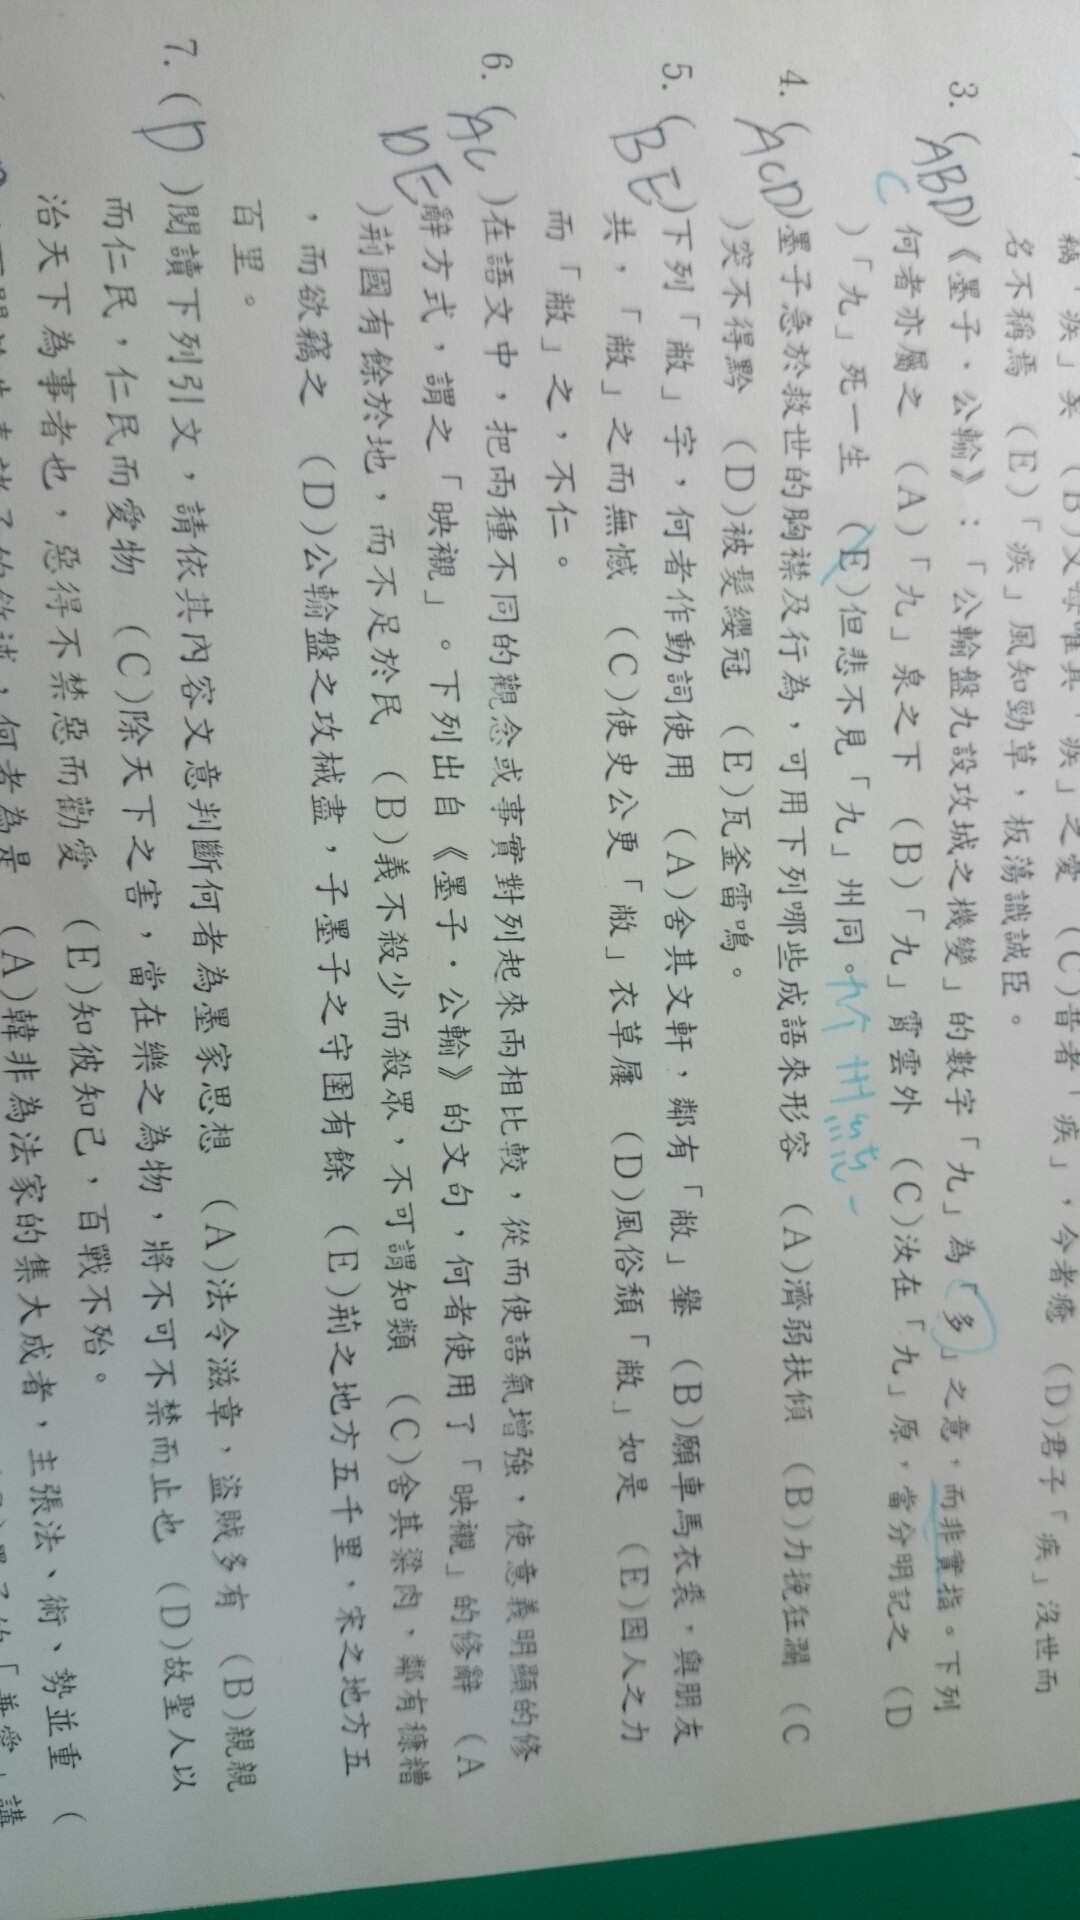 稱「疾」矣 (B)父母唯其「疾」之愛 (C)昔者「疾」，今者癒 (D)君子「疾」沒世而
名不稱焉 (E)「疾」風知勁草，板蕩識誠臣。
3. (ABD C)《墨子·公輸》：「公輸盤九設攻城之機變」的數字「九」為「多」之意，而非實指。下列
何者亦屬之 (A)「九」泉之下 (B)「九」霄雲外 (C)汝在「九」原，當分明記之 (D
)「九」死一生 (E)但悲不見「九」州同。九个州
4. (ACD)墨子急於救世的胸襟及行為，可用下列哪些成語來形容 (A)濟弱扶傾 (B)力挽狂瀾 (C
)突不得黔 (D)被髮纓冠 (E)瓦釜雷鳴。
5. (BE)下列「敝」字，何者作動詞使用 (A)舍其文軒，鄰有「敝」轝 (B)願車馬衣裘，與朋友
共，「敝」之而無憾 (C)使史公更「敝」衣草屨 (D)風俗頹「敝」如是 (E)因人之力
而「敝」之，不仁。
6. (AC DE)在語文中，把兩種不同的觀念或事實對列起來兩相比較，從而使語氣增強，使意義明顯的修
辭方式，謂之「映襯」。下列出自《墨子·公輸》的文句，何者使用了「映襯」的修辭 (A
)荊國有餘於地，而不足於民 (B)義不殺少而殺眾，不可謂知類 (C)舍其粱肉，鄰有糠糟
，而欲竊之 (D)公輸盤之攻械盡，子墨子之守圉有餘 (E)荊之地方五千里，宋之地方五
百里。
7. (D)閱讀下列引文，請依其內容文意判斷何者為墨家思想 (A)法令滋章，盜賊多有 (B)親親
而仁民，仁民而愛物 (C)除天下之害，當在樂之為物，將不可不禁而止也 (D)故聖人以
治天下為事者也，惡得不禁惡而勸愛 (E)知彼知己，百戰不殆。
何者為是 (A)韓非為法家的集大成者，主張法、術、勢並重 (